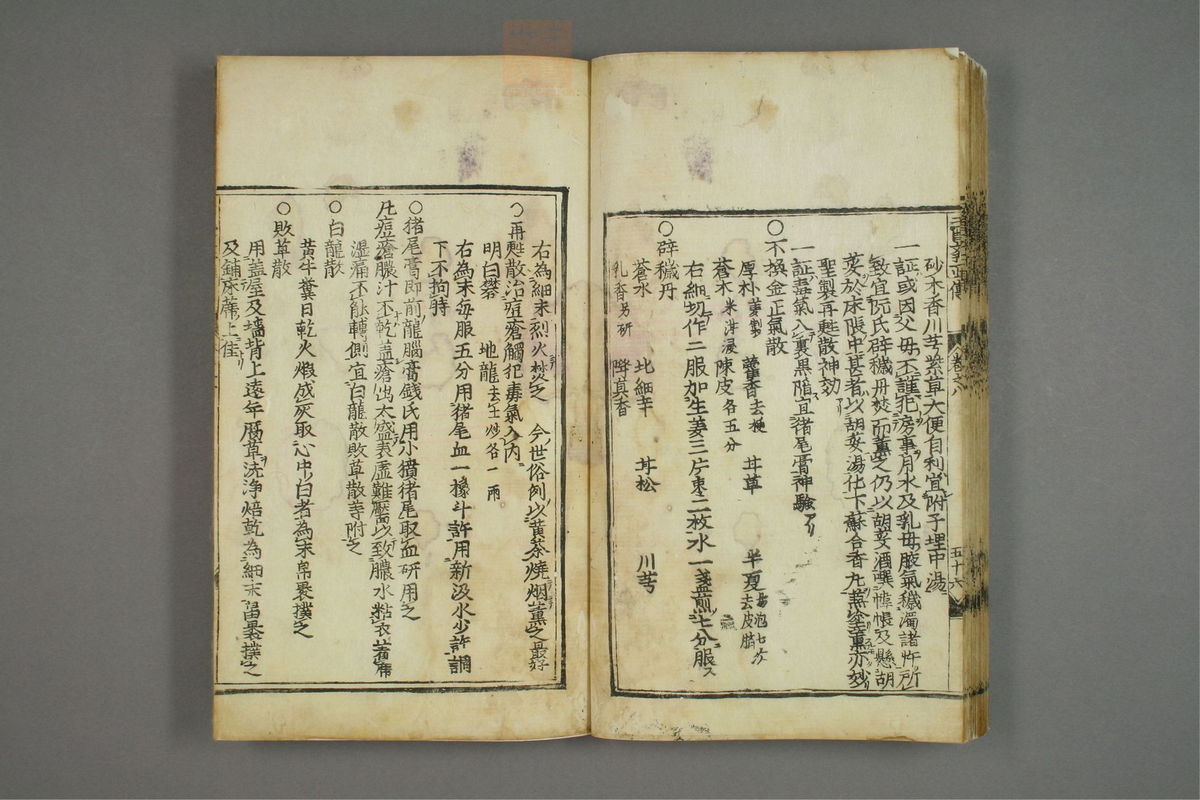 砂木香川芎紫草大便自利宜附子理中湯
一証或因父母不謹犯房事月水及乳母腋氣穢濁諸忤所
致宜阮氏辟穢丹焚而薰之仍以胡荽酒噀幃帳及懸胡
荽於床帳中甚者以胡荽湯化下蘇合香丸薰塗薰亦妙
聖製再甦散神効
一証毒氣入裏黒陥宜猪尾膏神驗
○不換金正氣散
厚朴姜製 藿香去梗 甘草 半夏湯泡七次去皮臍
蒼朮米泔浸 陳皮各五分
右細切作二服加生姜三片棗二枚水一盞煎七分服
○辟穢丹
蒼朮 北細辛 甘松 川芎
乳香另研 降真香
右為細末烈火焚之 今世俗例以黄茶燒烟薰之最好
○再甦散治痘瘡觸犯毒氣入内
明白礬 地龍去土炒各一兩
右為末每服五分用猪尾血一橡斗許用新汲水少許調
下不拘時
○猪尾膏即前龍腦膏錢氏用小猪尾取血研用之
凡痘瘡膿汁不乾盖瘡出太盛表虚難靨以致膿水粘衣著席
濕痛不能轉側宜白龍散敗草散等附之
○白龍散
黄牛糞日乾火煅成灰取心中白者為末帛裹撲之
○敗草散
用盖屋及墻背上遠年腐草洗浄焙乾為細末帛裹撲之
及鋪床薦上佳
卷之八
五十六